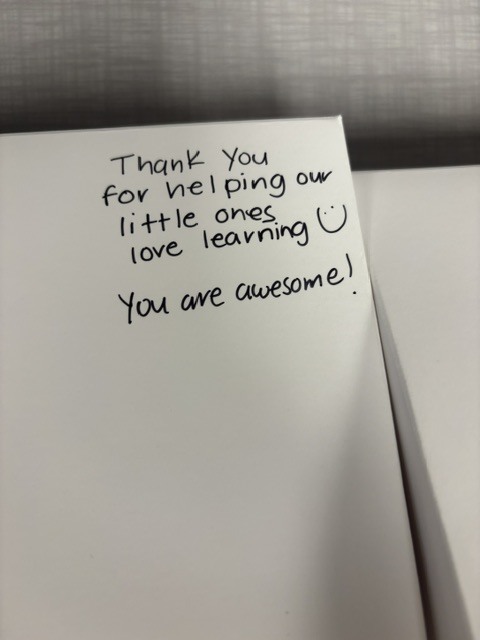 Thank You
for helping our
little ones
love learning :)
You are awesome!